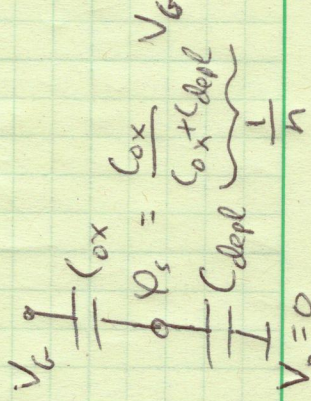 V_G
C_ox
φ_s = C_ox / (C_ox + C_depl) V_G
1/n
C_depl
V_B = 0